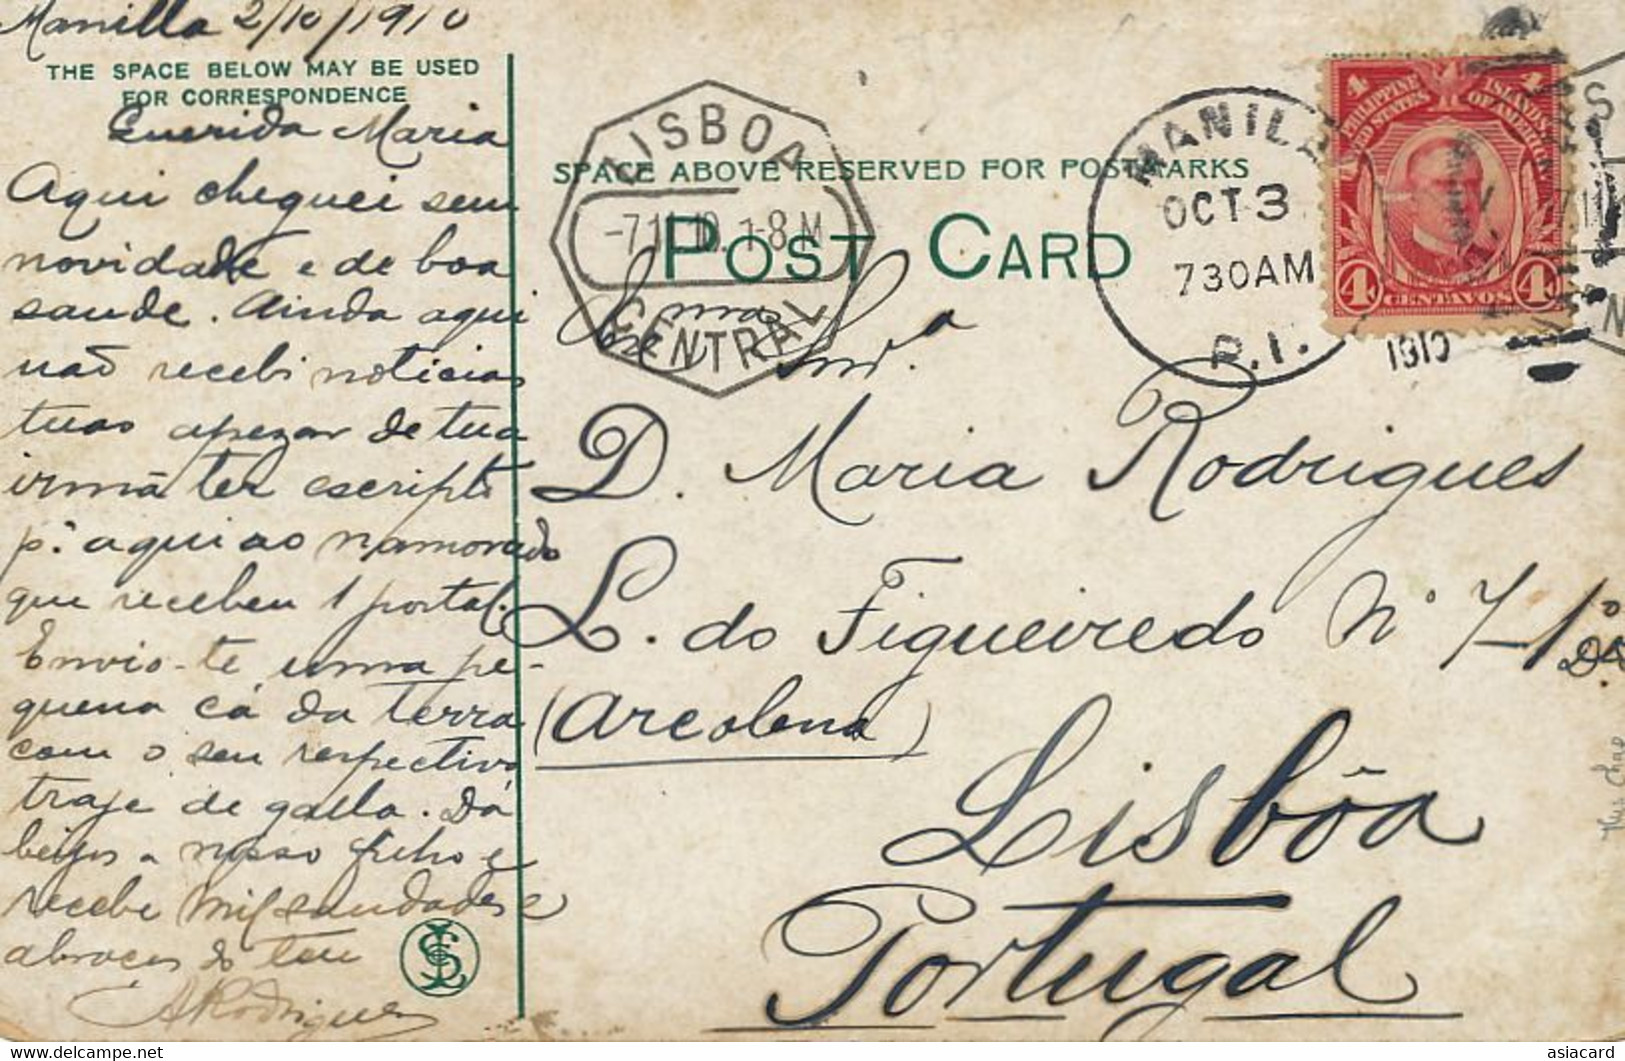 Manilla 2/10/1910
THE SPACE BELOW MAY BE USED
FOR CORRESPONDENCE
Querida Maria
Aqui cheguei sem
novidade e de boa
saude. Ainda aqui
não recebi noticias
tuas apezar de tua
irmã ter escripto
p.ª aqui ao namorado
que recebeu 1 postal.
Envio-te uma pe-
quena cá da terra
com o seu respectivo
traje de galla. Dá
beijos a nosso filho e
recebe mil saudades e
abraços do teu
ARodrigues
LISBOA
CENTRAL
-7.11.10. 7-8 M
SPACE ABOVE RESERVED FOR POSTMARKS
POST CARD
MANILA
OCT 3
730AM
P.I.
1910
4 4
PHILIPPINE ISLANDS
UNITED STATES OF AMERICA
4 CENTAVOS 4
Snr.ª
D. Maria Rodrigues
L. do Figueiredo Nº 7-1º
D.
(Arcolena)
Lisbôa
Portugal
asiacard